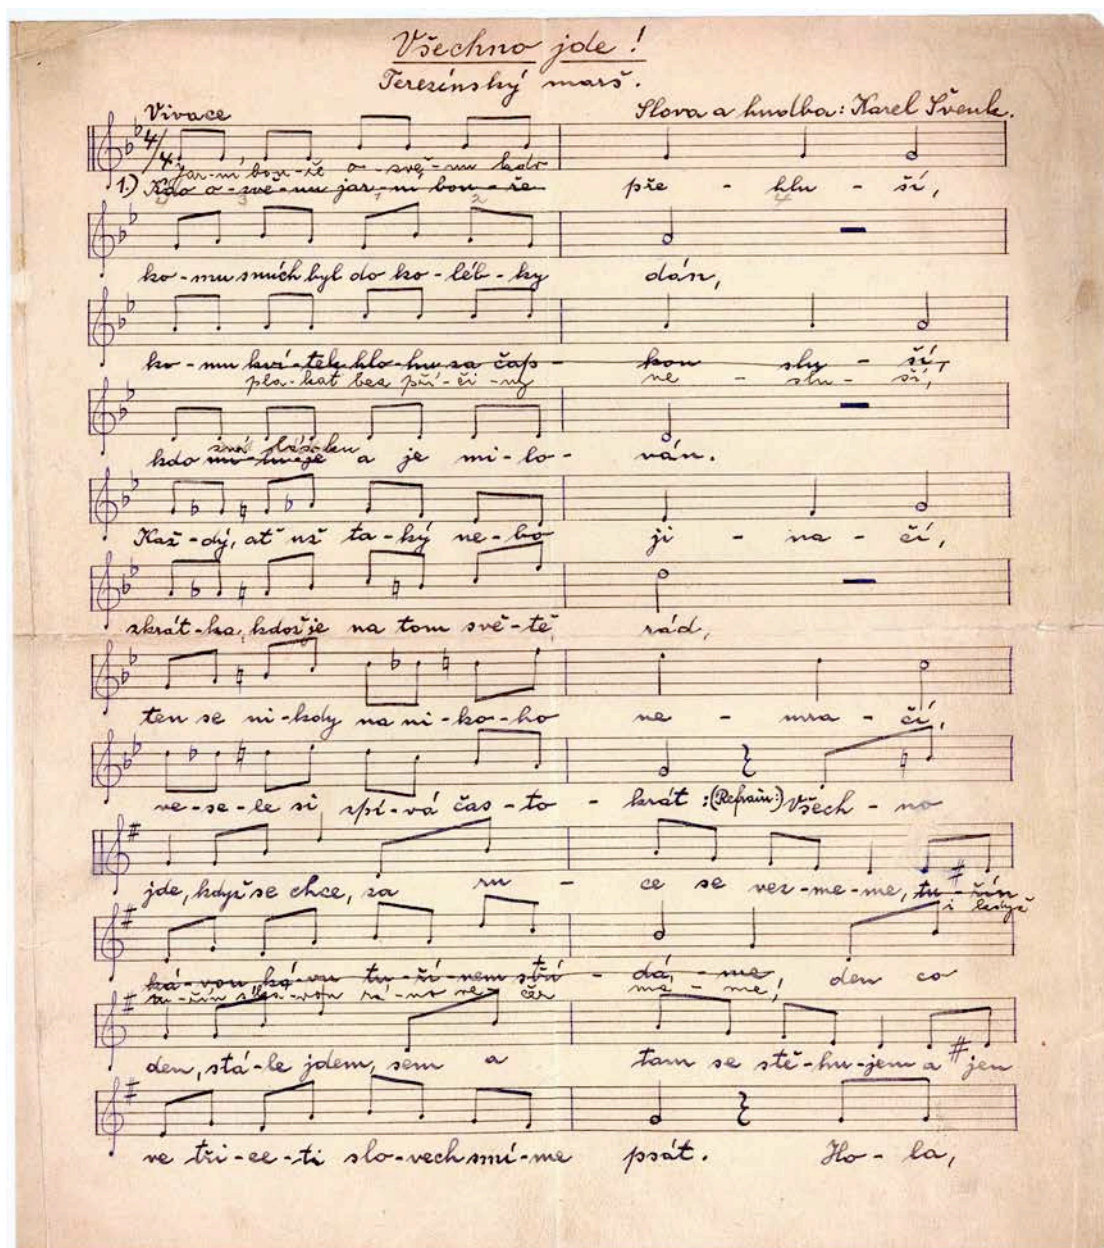 Všechno jde!
Terezínský marš.
Vivace
Slova a hudba: Karel Švenk.
4/4
jar-ní bou-ře o-zvě-nu kdo
1.) Kdo o-zvě-nu jar-ní bou-ře pře - hlu - ší,
3 1 2 4
ko-mu smích byl do ko-léb-ky dán,
ko-mu kví-tek hlo-hu za čap- kou slu - ší,
pla-kat bez pří-či-ny ne - slu - ší,
kdo mi-lu-je a je mi-lo- ván.
Kaž-dý, ať už ta-ký ne-bo ji - na - čí,
zkrát-ka, kdož je na tom svě-tě rád,
ten se ni-kdy na ni-ko-ho ne - mra - čí,
ve-se-le si zpí-vá čas-to - krát: (Refrain:) Všech-no
jde, když se chce, za ru - ce se vez-me-me, tu-řín
i když
ká-vou, ká-vu tu-ří-nem stří - dá - me, den co
me - me,
den, stá-le jdem, sem a tam se stě-hu-jem a jen
ve tři-ce-ti slo-vech smí-me psát. Ho - la,